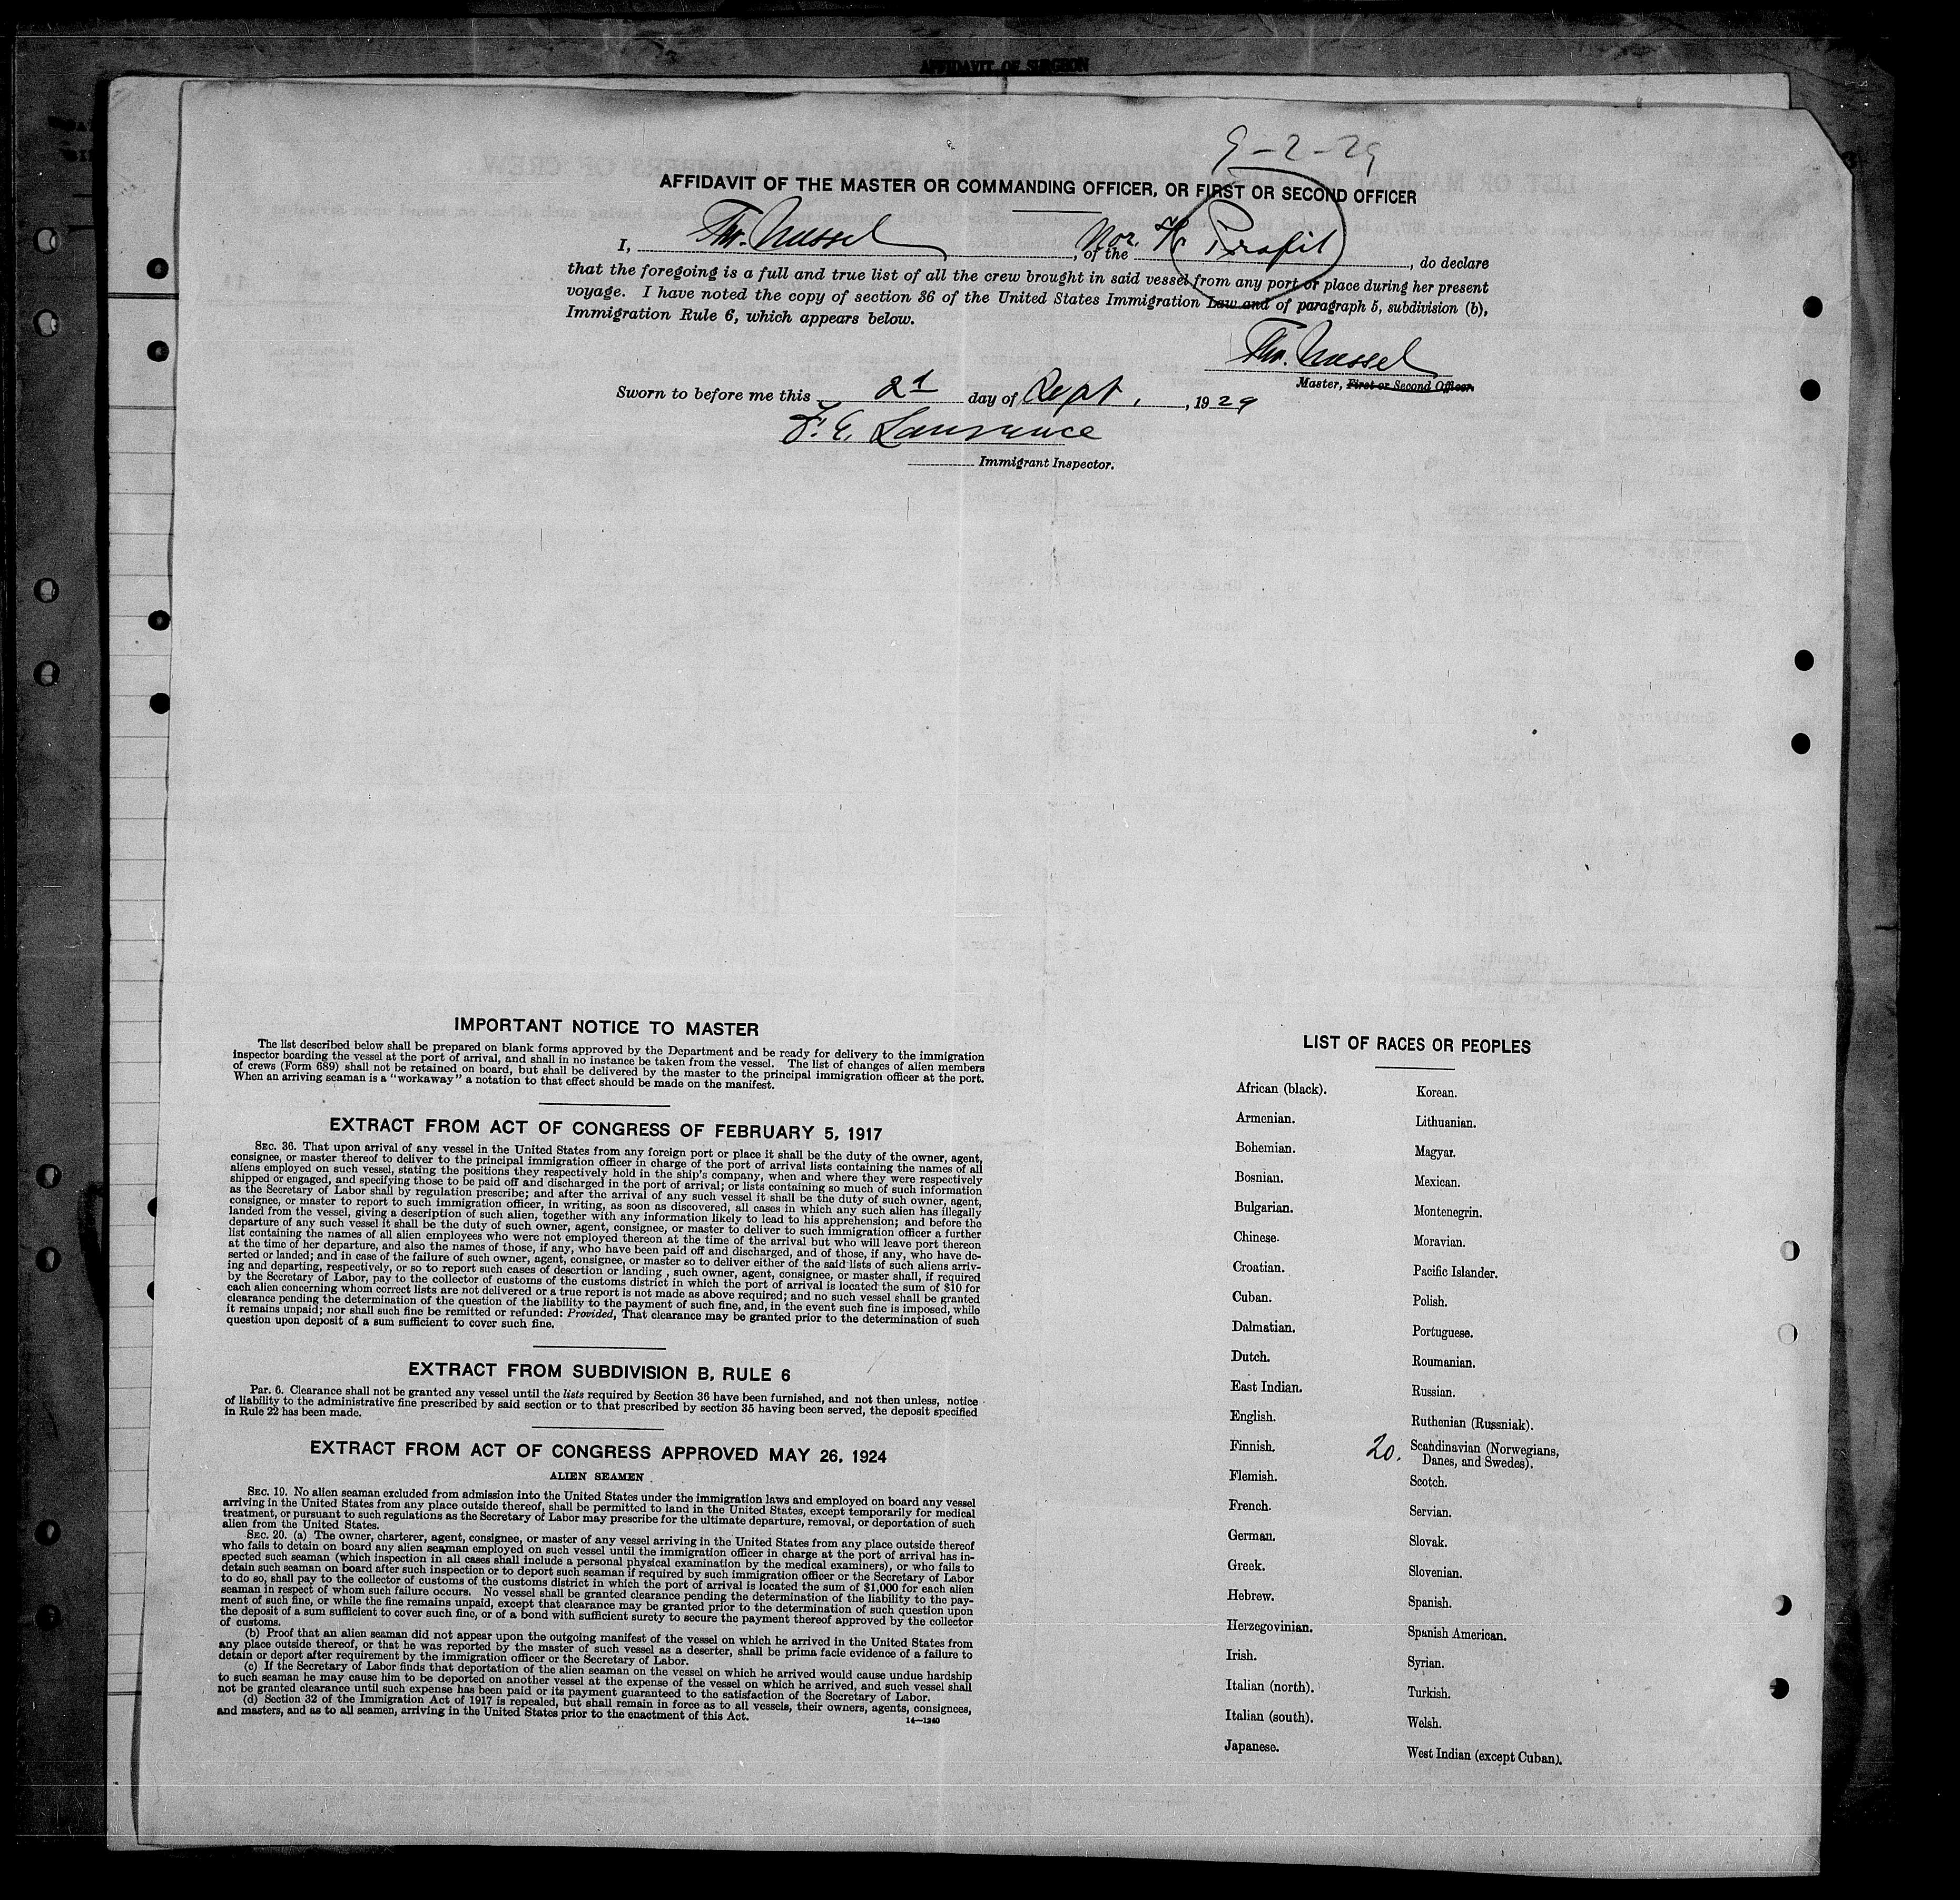 AFFIDAVIT OF SURGEON
9-2-29
AFFIDAVIT OF THE MASTER OR COMMANDING OFFICER, OR FIRST OR SECOND OFFICER
I, , of the Nor. Profit, do declare
that the foregoing is a full and true list of all the crew brought in said vessel from any port or place during her present
voyage. I have noted the copy of section 36 of the United States Immigration Law and of paragraph 5, subdivision (b),
Immigration Rule 6, which appears below.
Master, First or Second Officer.
Sworn to before me this 2d day of Sept., 1929
F. E. Lawrence
Immigrant Inspector.
IMPORTANT NOTICE TO MASTER
The list described below shall be prepared on blank forms approved by the Department and be ready for delivery to the immigration
inspector boarding the vessel at the port of arrival, and shall in no instance be taken from the vessel. The list of changes of alien members
of crews (Form 689) shall not be retained on board, but shall be delivered by the master to the principal immigration officer at the port.
When an arriving seaman is a "workaway" a notation to that effect should be made on the manifest.
EXTRACT FROM ACT OF CONGRESS OF FEBRUARY 5, 1917
SEC. 36. That upon arrival of any vessel in the United States from any foreign port or place it shall be the duty of the owner, agent,
consignee, or master thereof to deliver to the principal immigration officer in charge of the port of arrival lists containing the names of all
aliens employed on such vessel, stating the positions they respectively hold in the ship's company, when and where they were respectively
shipped or engaged, and specifying those to be paid off and discharged in the port of arrival; or lists containing so much of such information
as the Secretary of Labor shall by regulation prescribe; and after the arrival of any such vessel it shall be the duty of such owner, agent,
consignee, or master to report to such immigration officer, in writing, as soon as discovered, all cases in which any such alien has illegally
landed from the vessel, giving a description of such alien, together with any information likely to lead to his apprehension; and before the
departure of any such vessel it shall be the duty of such owner, agent, consignee, or master to deliver to such immigration officer a further
list containing the names of all alien employees who were not employed thereon at the time of the arrival but who will leave port thereon
at the time of her departure, and also the names of those, if any, who have been paid off and discharged, and of those, if any, who have de-
serted or landed; and in case of the failure of such owner, agent, consignee, or master so to deliver either of the said lists of such aliens arriv-
ing and departing, respectively, or so to report such cases of desertion or landing, such owner, agent, consignee, or master shall, if required
by the Secretary of Labor, pay to the collector of customs of the customs district in which the port of arrival is located the sum of $10 for
each alien concerning whom correct lists are not delivered or a true report is not made as above required; and no such vessel shall be granted
clearance pending the determination of the question of the liability to the payment of such fine, and, in the event such fine is imposed, while
it remains unpaid; nor shall such fine be remitted or refunded: Provided, That clearance may be granted prior to the determination of such
question upon deposit of a sum sufficient to cover such fine.
EXTRACT FROM SUBDIVISION B, RULE 6
Par. 6. Clearance shall not be granted any vessel until the lists required by Section 36 have been furnished, and not then unless, notice
of liability to the administrative fine prescribed by said section or to that prescribed by section 35 having been served, the deposit specified
in Rule 22 has been made.
EXTRACT FROM ACT OF CONGRESS APPROVED MAY 26, 1924
ALIEN SEAMEN
SEC. 19. No alien seaman excluded from admission into the United States under the immigration laws and employed on board any vessel
arriving in the United States from any place outside thereof, shall be permitted to land in the United States, except temporarily for medical
treatment, or pursuant to such regulations as the Secretary of Labor may prescribe for the ultimate departure, removal, or deportation of such
alien from the United States.
SEC. 20. (a) The owner, charterer, agent, consignee, or master of any vessel arriving in the United States from any place outside thereof
who fails to detain on board any alien seaman employed on such vessel until the immigration officer in charge at the port of arrival has in-
spected such seaman (which inspection in all cases shall include a personal physical examination by the medical examiners), or who fails to
detain such seaman on board after such inspection or to deport such seaman if required by such immigration officer or the Secretary of Labor
to do so, shall pay to the collector of customs of the customs district in which the port of arrival is located the sum of $1,000 for each alien
seaman in respect of whom such failure occurs. No vessel shall be granted clearance pending the determination of the liability to the pay-
ment of such fine, or while the fine remains unpaid, except that clearance may be granted prior to the determination of such question upon
the deposit of a sum sufficient to cover such fine, or of a bond with sufficient surety to secure the payment thereof approved by the collector
of customs.
(b) Proof that an alien seaman did not appear upon the outgoing manifest of the vessel on which he arrived in the United States from
any place outside thereof, or that he was reported by the master of such vessel as a deserter, shall be prima facie evidence of a failure to
detain or deport after requirement by the immigration officer or the Secretary of Labor.
(c) If the Secretary of Labor finds that deportation of the alien seaman on the vessel on which he arrived would cause undue hardship
to such seaman he may cause him to be deported on another vessel at the expense of the vessel on which he arrived, and such vessel shall
not be granted clearance until such expense has been paid or its payment guaranteed to the satisfaction of the Secretary of Labor.
(d) Section 32 of the Immigration Act of 1917 is repealed, but shall remain in force as to all vessels, their owners, agents, consignees,
and masters, and as to all seamen, arriving in the United States prior to the enactment of this Act.
14—1240
LIST OF RACES OR PEOPLES
African (black).
Armenian.
Bohemian.
Bosnian.
Bulgarian.
Chinese.
Croatian.
Cuban.
Dalmatian.
Dutch.
East Indian.
English.
Finnish.
Flemish.
French.
German.
Greek.
Hebrew.
Herzegovinian.
Irish.
Italian (north).
Italian (south).
Japanese.
Korean.
Lithuanian.
Magyar.
Mexican.
Montenegrin.
Moravian.
Pacific Islander.
Polish.
Portuguese.
Roumanian.
Russian.
Ruthenian (Russniak).
20. Scandinavian (Norwegians,
Danes, and Swedes).
Scotch.
Servian.
Slovak.
Slovenian.
Spanish.
Spanish American.
Syrian.
Turkish.
Welsh.
West Indian (except Cuban).